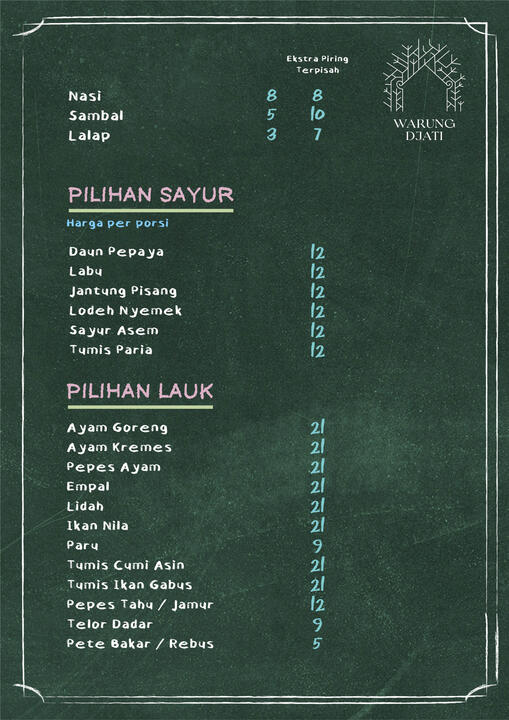 Ekstra Piring
Terpisah
Nasi 8 8
Sambal 5 10
Lalap 3 7
WARUNG
DJATI
PILIHAN SAYUR
Harga per porsi
Daun Pepaya 12
Labu 12
Jantung Pisang 12
Lodeh Nyemek 12
Sayur Asem 12
Tumis Paria 12
PILIHAN LAUK
Ayam Goreng 21
Ayam Kremes 21
Pepes Ayam 21
Empal 21
Lidah 21
Ikan Nila 21
Paru 9
Tumis Cumi Asin 21
Tumis Ikan Gabus 21
Pepes Tahu / Jamur 12
Telor Dadar 9
Pete Bakar / Rebus 5